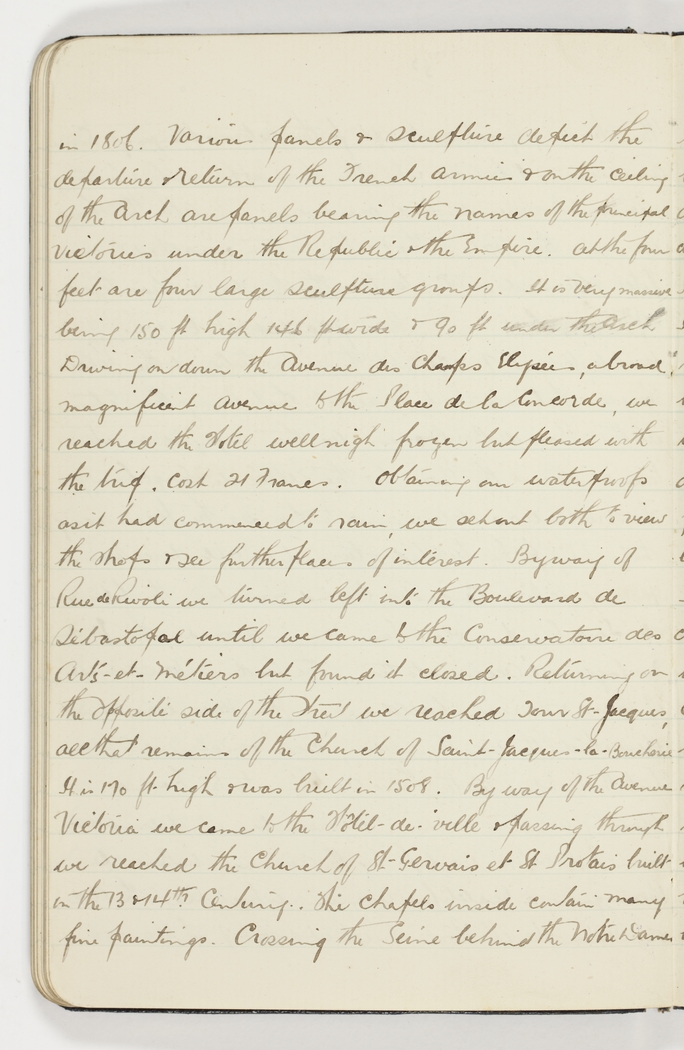 in 1806. Various panels & sculpture depict the
departure & return of the French armies & on the ceiling
of the Arch are panels bearing the names of the principal
victories under the Republic & the Empire. At the four
feet are four large sculpture groups. It is very massive
being 150 ft high 146 ft wide & 90 ft under the Arch
Driving on down the Avenue des Champs Elysées, a broad,
magnificent avenue to the Place de la Concorde, we
reached the Hotel wellnigh frozen but pleased with
the trip. Cost 21 Francs. Obtaining our waterproofs
as it had commenced to rain, we set out both to view
the shops & see further places of interest. By way of
Rue de Rivoli we turned left into the Boulevard de
Sébastopol until we came to the Conservatoire des
Arts-et-Métiers but found it closed. Returning on
the opposite side of the Street we reached Tour St-Jacques,
all that remains of the Church of Saint-Jacques-la-Boucherie
It is 170 ft high & was built in 1508. By way of the Avenue
Victoria we came to the Hôtel-de-ville & passing through
we reached the Church of St-Gervais et St Protais built
in the 13 & 14th Century. The chapels inside contain many
fine paintings. Crossing the Seine behind the Notre Dame